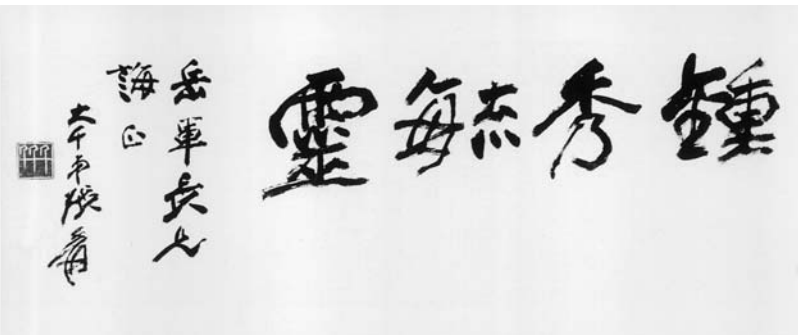 鍾秀毓靈
岳軍長兄
誨正
大千弟張爰